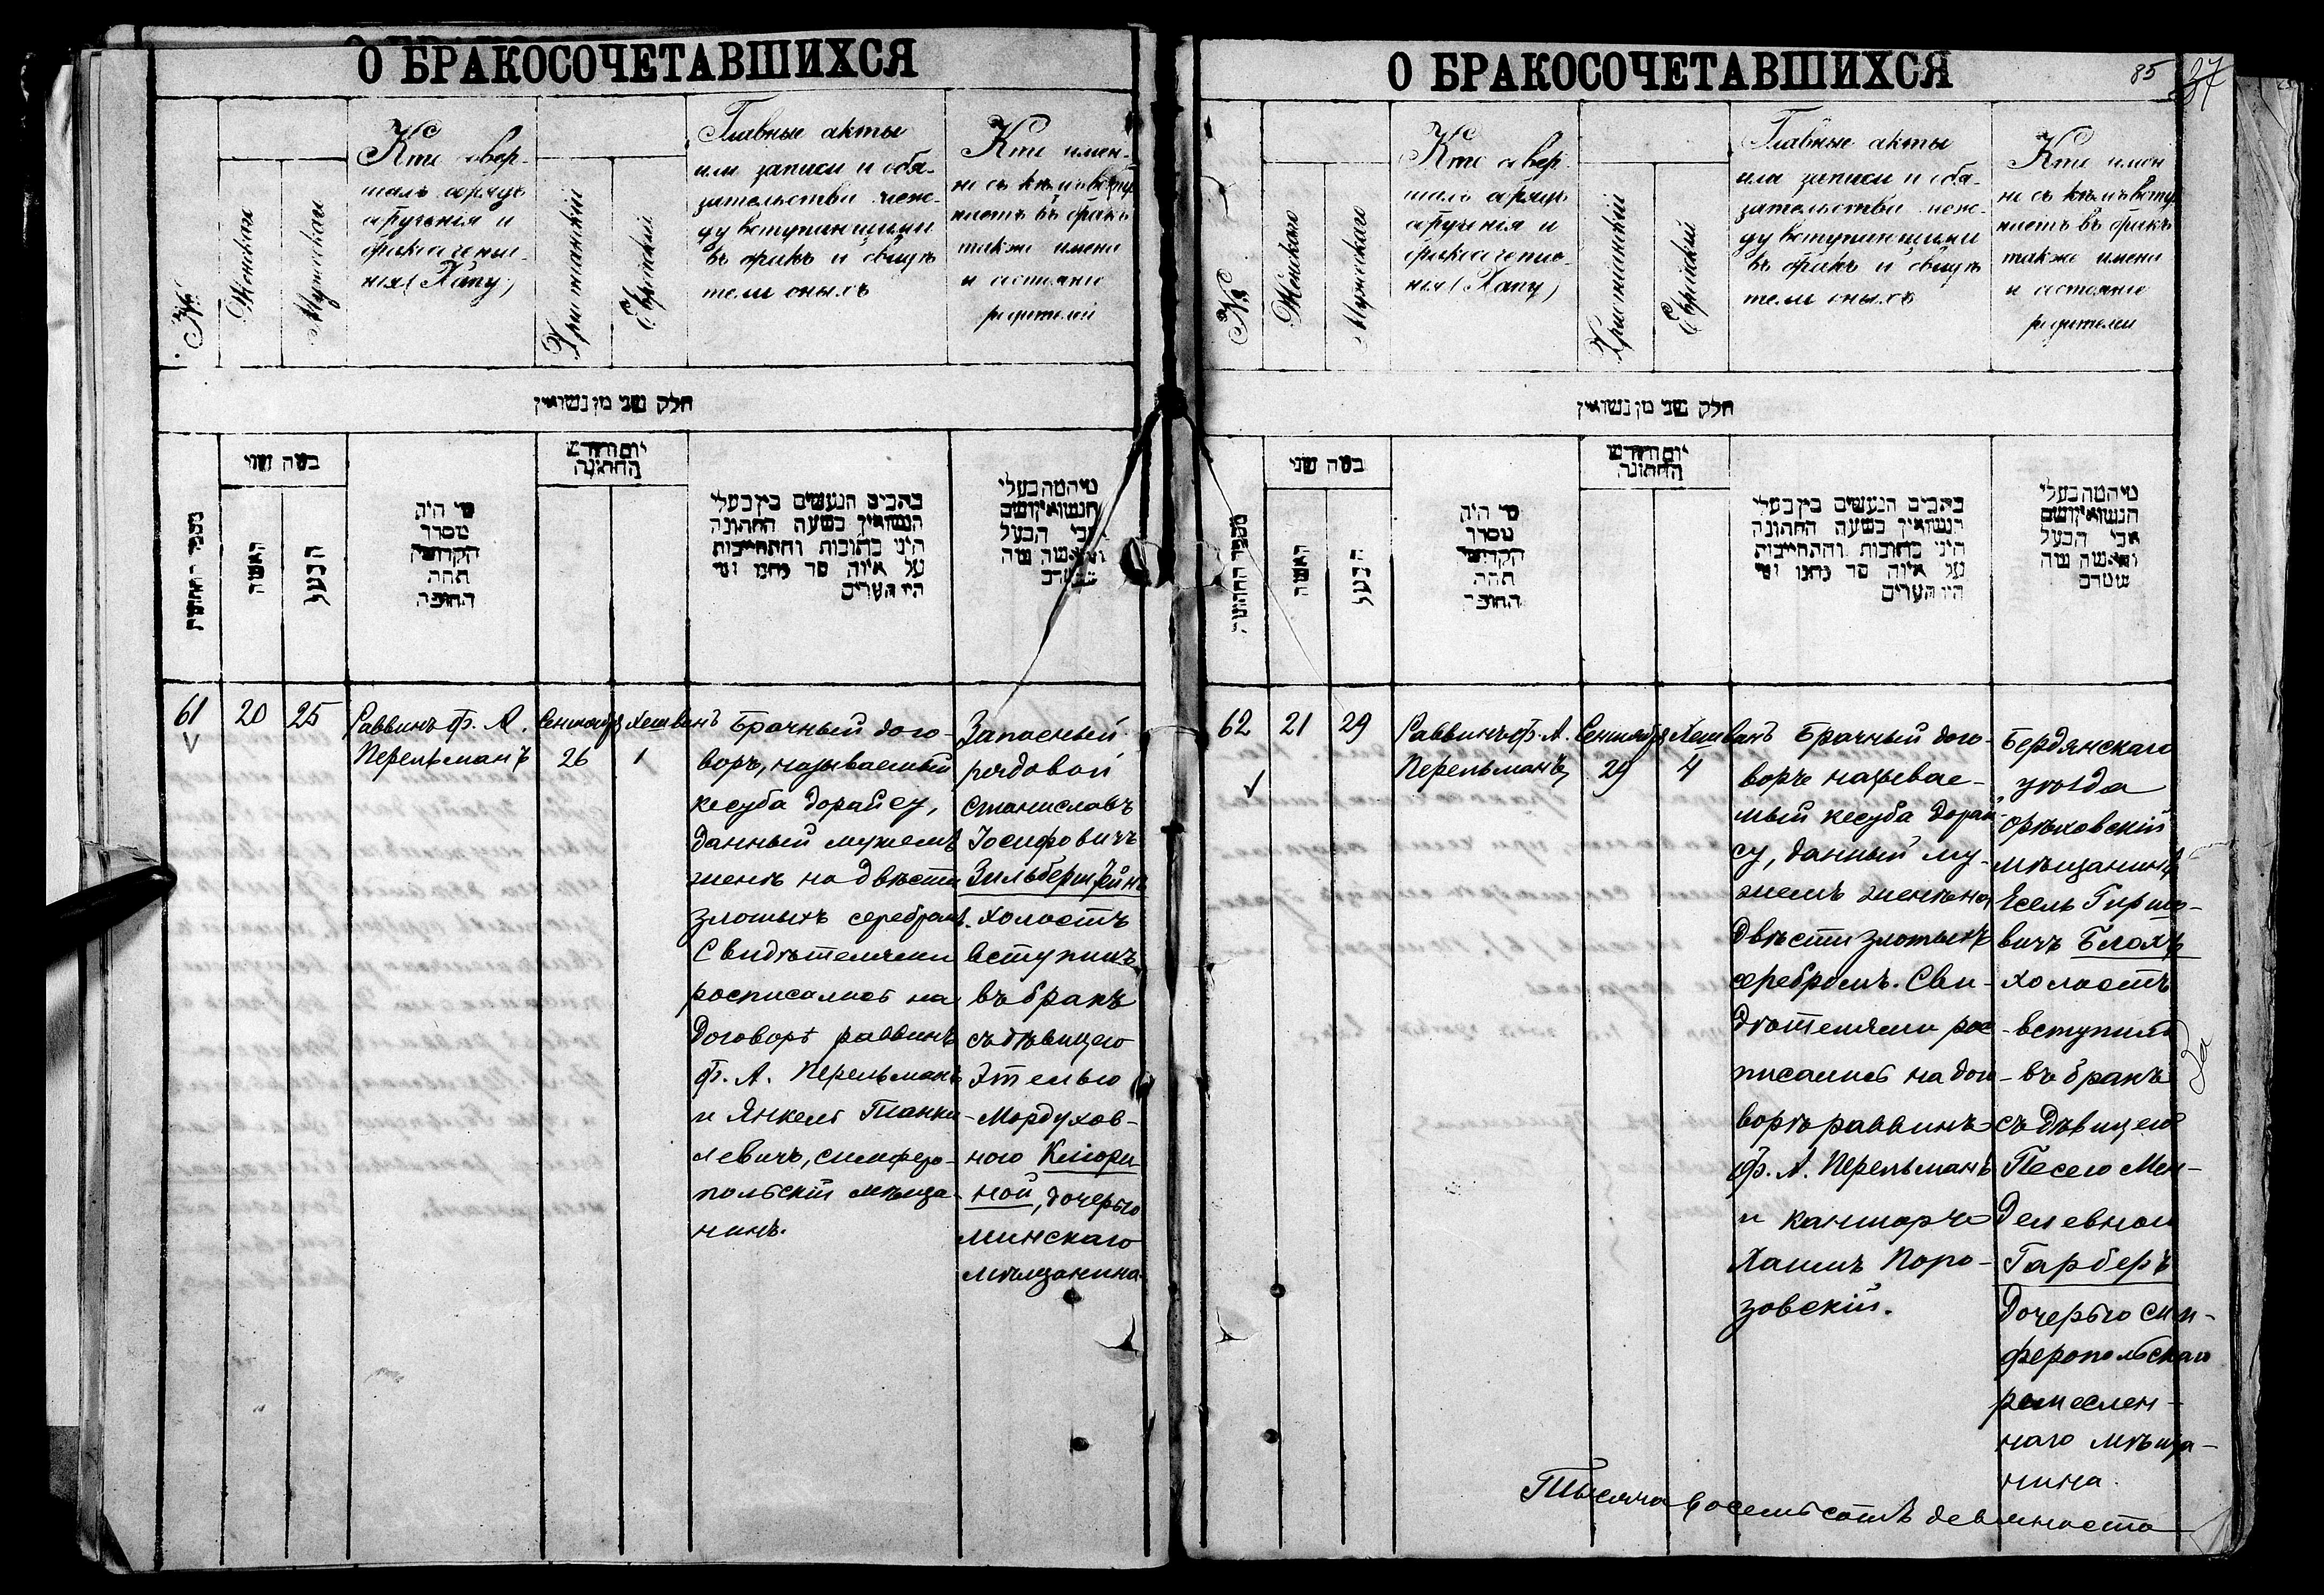 О БРАКОСОЧЕТАВШИХСЯ
№
Женскаго
Мужескаго
Кто совер-
шалъ обрядъ
обрученія и
бракосочета-
нія (Хупу)
Христіанскій
Еврейскій
Главные акты
или записи и обя-
зательства меж-
ду вступающими
въ бракъ и свидѣ
тели оныхъ
Кто имен-
но съ кѣмъ всту
паетъ въ бракъ
также имена
и состояніе
родителей
חלק שני מן נשואין
מספר החתונה
כמה שני
האשה
הבעל
מי היה
מסדר
הקדושין
תחת
החופה
יום וחודש
החתונה
כתבים הנעשים בין בעלי
הנשואין בשעה החתונה
היינו כתובות והתחייבות
על איזה סך נתנו ומי
היו העדים
61
20
25
Раввинъ Ф. А.
Перельманъ
Сентября
26
Хешванъ
1
Брачный дого-
воръ, называемый
кесуба дорайсу,
данный мужемъ
женѣ на двѣсти
злотыхъ серебромъ.
Свидѣтелями
росписались на
договорѣ раввинъ
Ф. А. Перельманъ
и Янкель
левичъ, симферо-
польскій мѣща-
нинъ.
Запасный
рядовой
Станиславъ
Іосифовичъ
Зильберштейнъ
холостъ
вступилъ
въ бракъ
съ дѣвицею
Этелью
Мордухов-
ною Кнори-
ной, дочерью
минскаго
мѣщанина.
О БРАКОСОЧЕТАВШИХСЯ
85
37
№
Женскаго
Мужескаго
Кто совер-
шалъ обрядъ
обрученія и
бракосочета-
нія (Хупу)
Христіанскій
Еврейскій
Главные акты
или записи и обя-
зательства меж-
ду вступающими
въ бракъ и свидѣ
тели оныхъ
Кто имен
но съ кѣмъ всту
паетъ въ бракъ
также имена
и состояніе
родителей
חלק שני מן נשואין
מספר החתונה
כמה שני
האשה
הבעל
מי היה
מסדר
הקדושין
תחת
החופה
יום וחודש
החתונה
כתבים הנעשים בין בעלי
הנשואין בשעה החתונה
היינו כתובות והתחייבות
על איזה סך נתנו ומי
היו העדים
62
21
29
Раввинъ Ф. А.
Перельманъ
Сентября
29
Хешванъ
4
Брачный дого-
воръ называе-
мый кесуба дорай-
су, данный му-
жемъ женѣ на
двѣсти злотыхъ
серебромъ. Сви-
дѣтелями рос-
писались на дого-
ворѣ раввинъ
Ф. А. Перельманъ
и канторъ
Хаимъ Поро-
зовскій.
Бердянскаго
уѣзда
Орѣховскій
мѣщанинъ
Есель Гиршо-
вичъ Блохъ
холостъ
вступилъ
въ бракъ
съ дѣвицею
Песею Мен-
делевной
Гарберъ
дочерью сим-
феропольскаго
ремеслен-
наго мѣща-
нина.
За
Тысяча восемьсотъ девяноста